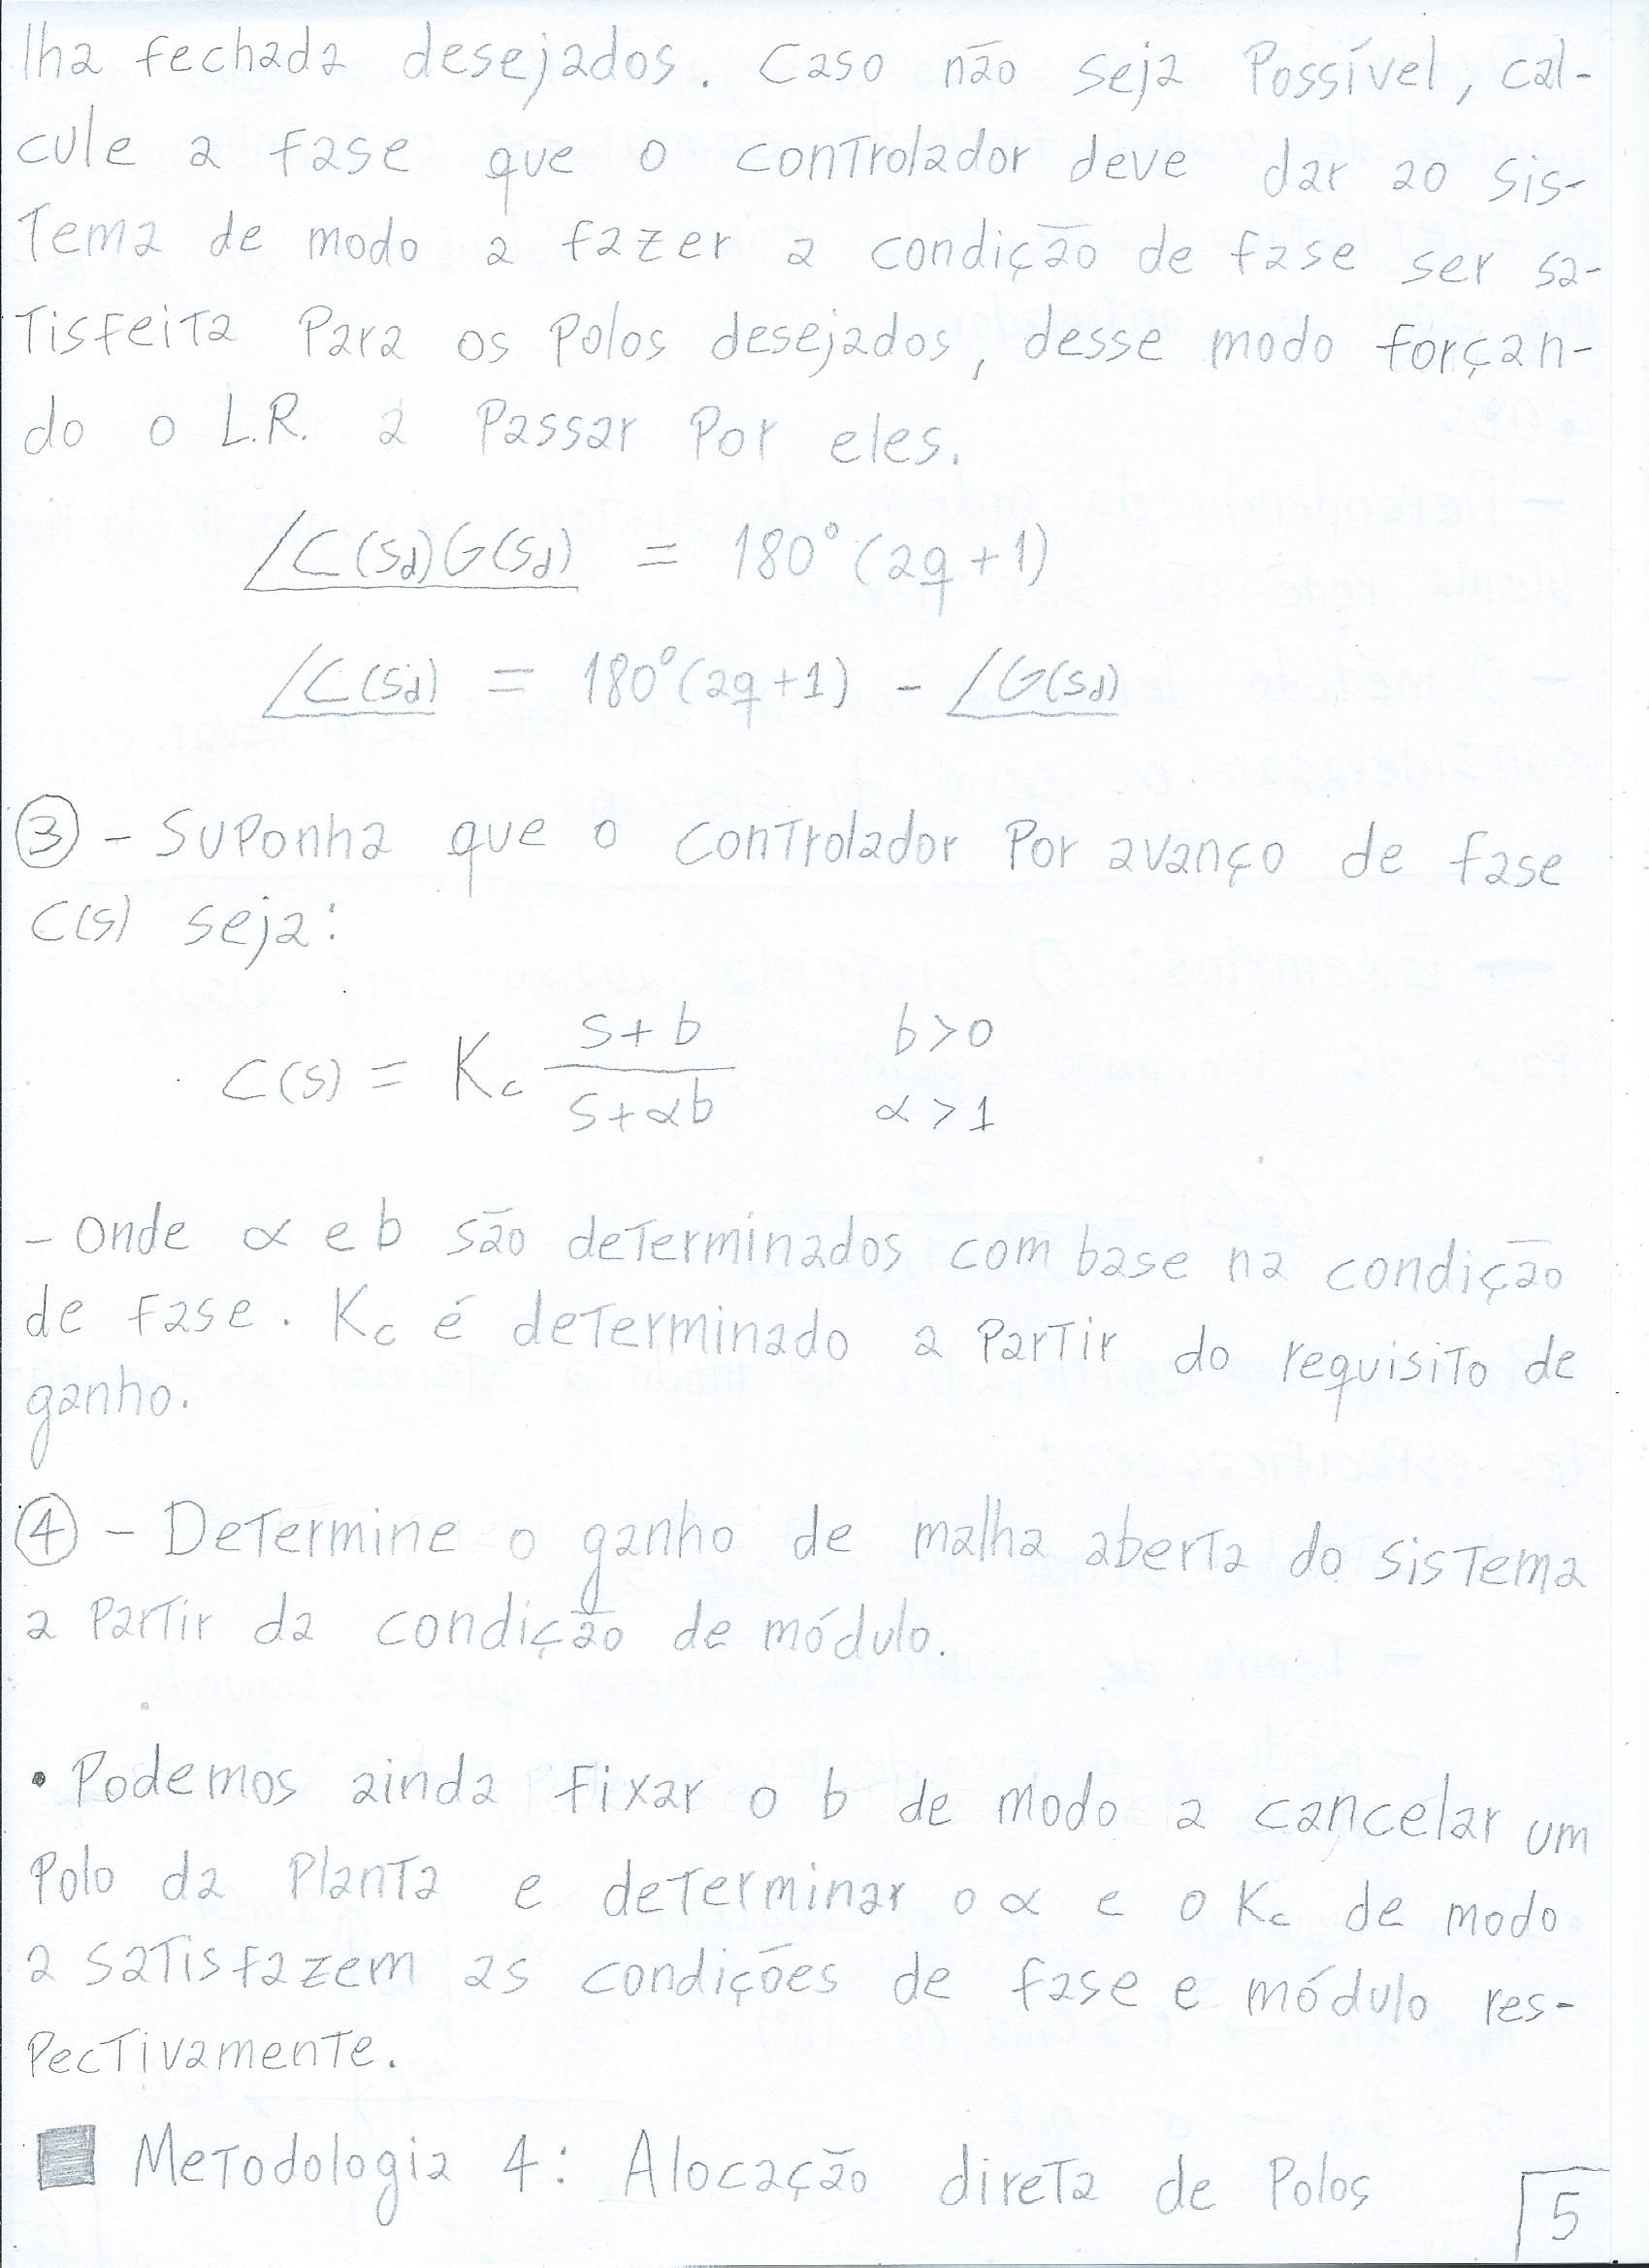 lha fechada desejados. Caso não seja Possível, cal-
cule a fase que o controlador deve dar ao sis-
tema de modo a fazer a condição de fase ser sa-
tisfeita Para os Polos desejados, desse modo forçan-
do o L.R. a Passar Por eles.
∠C(sd)G(sd) = 180°(2q+1)
∠C(sd) = 180°(2q+1) - ∠G(sd)
③ - Suponha que o controlador Por avanço de fase
C(s) seja:
s+b b>0
C(s) = Kc
s+αb α>1
- Onde α e b são determinados com base na condição
de fase. Kc é determinado a Partir do requisito de
ganho.
④ - Determine o ganho de malha aberta do sistema
a Partir da condição de módulo.
• Podemos ainda fixar o b de modo a cancelar um
Polo da Planta e determinar o α e o Kc de modo
a satisfazem as condições de fase e módulo res-
Pectivamente.
Metodologia 4: Alocação direta de Polos
5